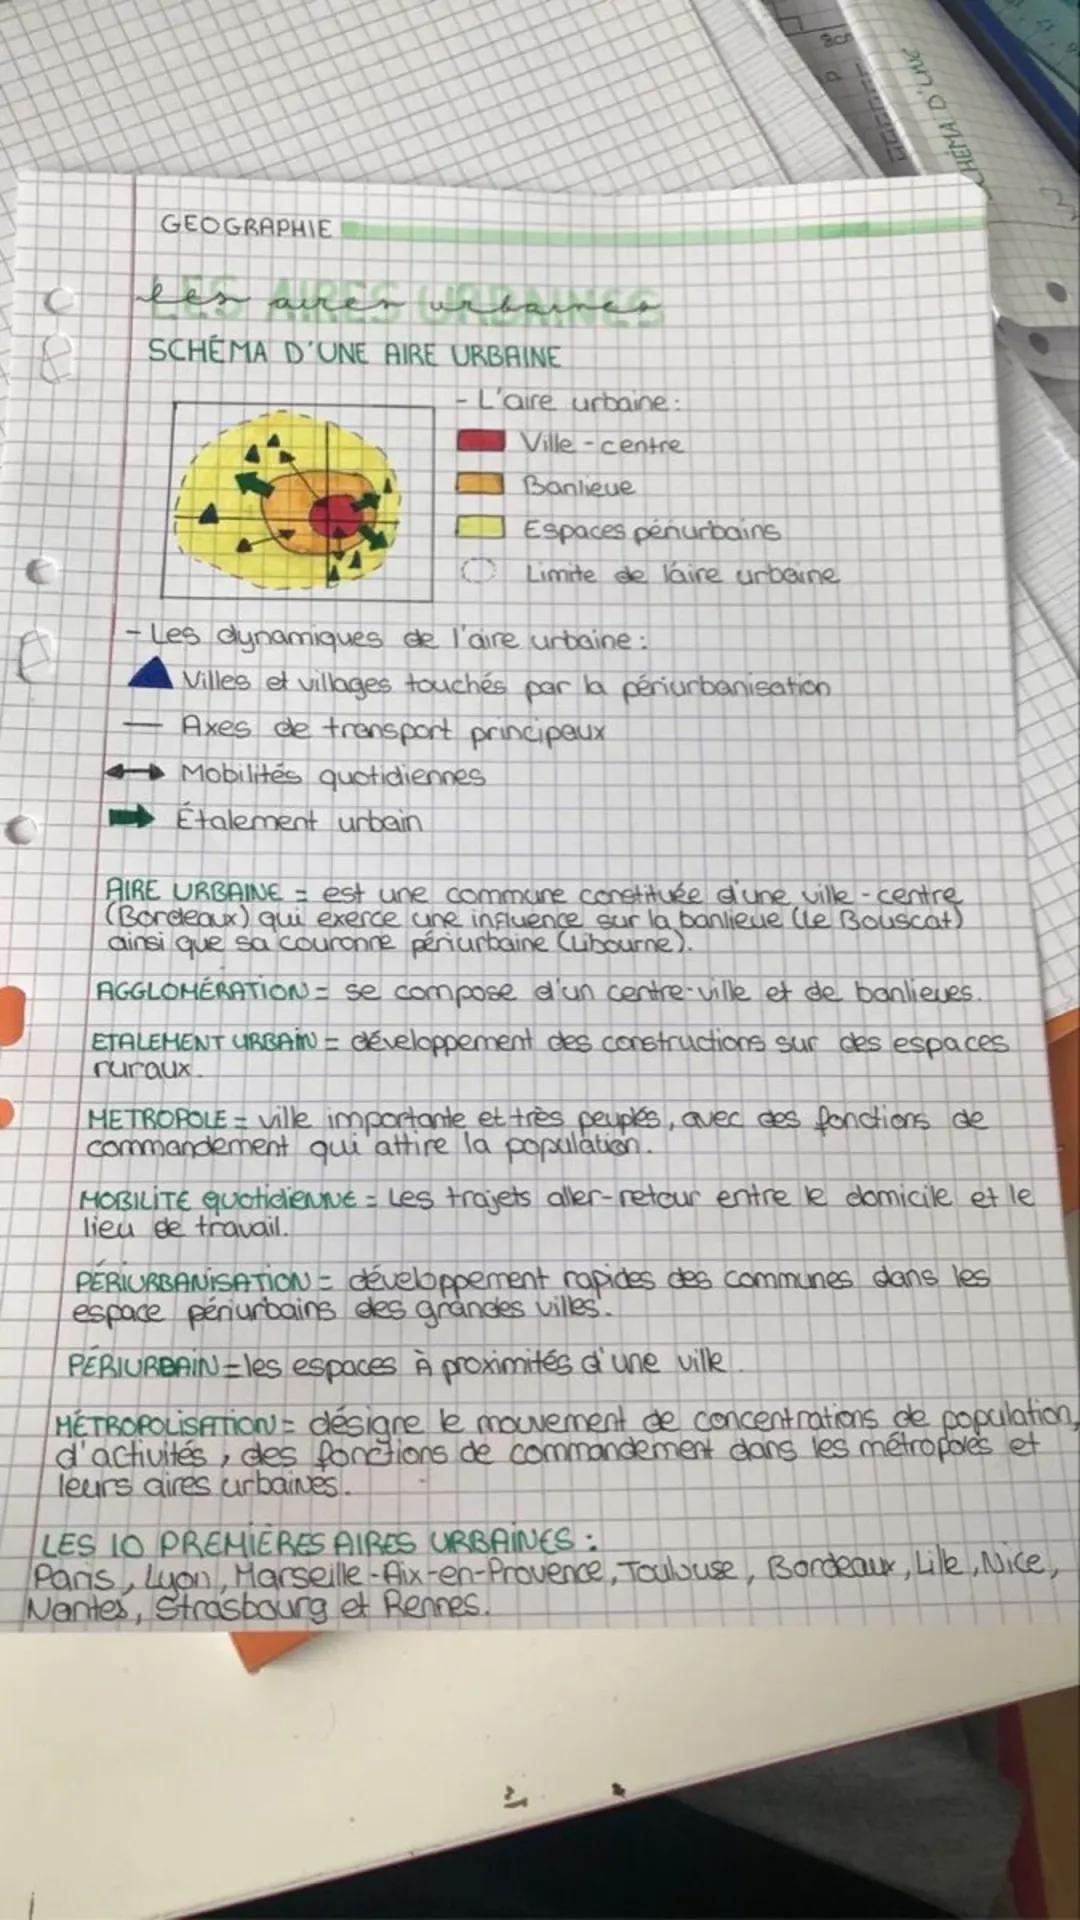 SCHÉMA D'UNE
GEOGRAPHIE
LES AIRES URBAINES
les aires urbaines
SCHÉMA D'UNE AIRE URBAINE
- L'aire urbaine :
Ville - centre
Banlieue
Espaces périurbains
Limite de l'aire urbaine
- Les dynamiques de l'aire urbaine :
Villes et villages touchés par la périurbanisation
Axes de transport principaux
Mobilités quotidiennes
Étalement urbain
AIRE URBAINE = est une commune constituée d'une ville - centre
(Bordeaux) qui exerce une influence sur la banlieue (Le Bouscat)
ainsi que sa couronne périurbaine (Libourne).
AGGLOMÉRATION = se compose d'un centre-ville et de banlieues.
ETALEMENT URBAIN = développement des constructions sur des espaces
ruraux.
METROPOLE = ville importante et très peuplés, avec des fonctions de
commandement qui attire la population.
MOBILITE quotidiENNE = Les trajets aller-retour entre le domicile et le
lieu de travail.
PÉRIURBANISATION = développement rapides des communes dans les
espace périurbains des grandes villes.
PÉRIURBAIN = les espaces À proximités d'une ville.
MÉTROPOLISATION = désigne le mouvement de concentrations de population,
d'activités, des fonctions de commandement dans les métropoles et
leurs aires urbaines.
LES 10 PREMIÈRES AIRES URBAINES :
Paris, Lyon, Marseille-Aix-en-Provence, Toulouse, Bordeaux, Lille, Nice,
Nantes, Strasbourg et Rennes.